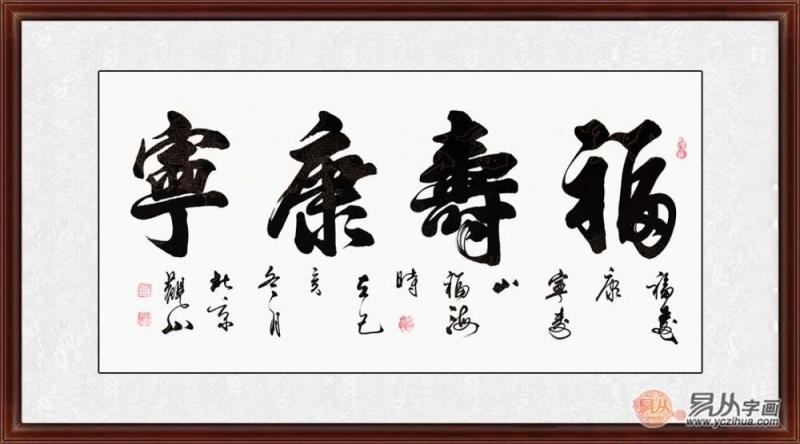 福壽康寧
福
康
寧壽
山
福海
時
在己
亥
冬月
北京
觀山
易从字画
www.yczihua.com